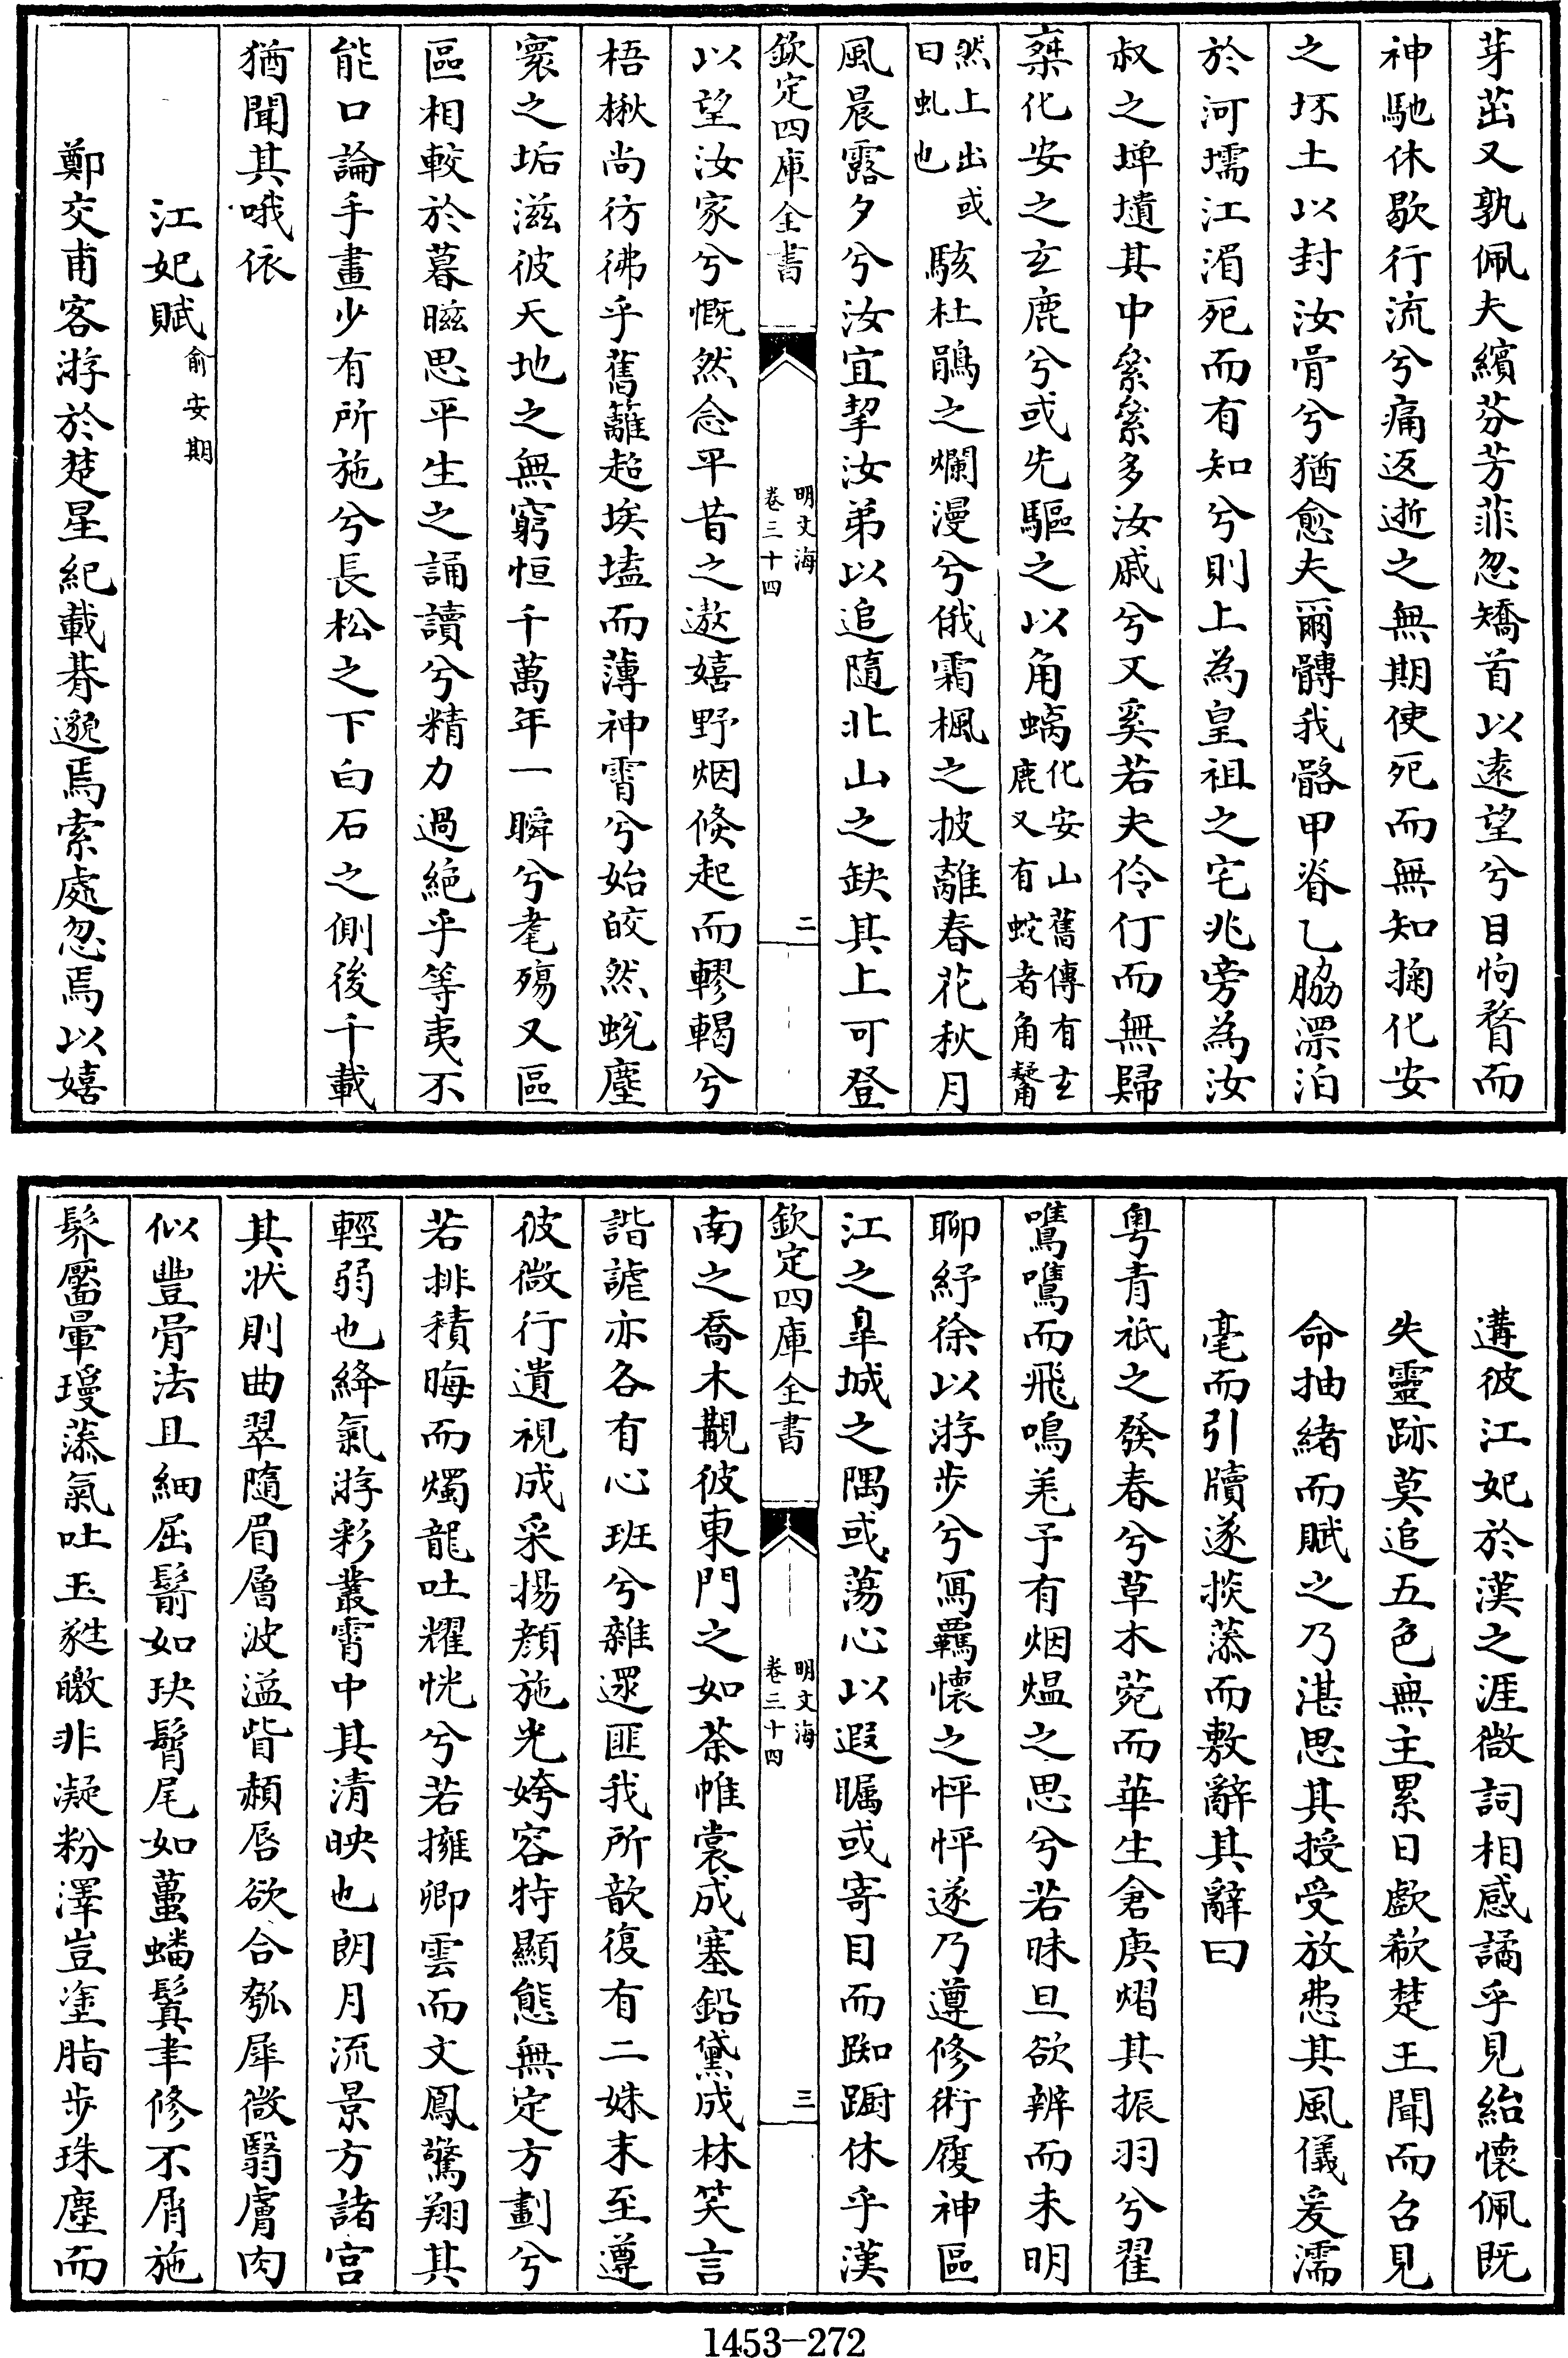 芽茁又孰佩夫繽芬芳菲忽矯首以遠望兮目恂瞀而
神馳休歇行流兮痛返逝之無期使死而無知掬化安
之坏土以封汝骨兮猶愈夫爾髆我骼甲脊乙脇漂泊
於河壖江湄死而有知兮則上為皇祖之宅兆旁為汝
叔之埤墳其中纍纍多汝戚兮又奚若夫伶仃而無歸
桀化安之玄鹿兮或先驅之以角螭化安山舊傳有玄
鹿又有蛇者角觺
然上出或
曰虬也
駭杜鵑之爛漫兮俄霜楓之披離春花秋月
風晨露夕兮汝宜挈汝弟以追隨北山之缺其上可登
欽定四庫全書
明文海
卷三十四
二
以望汝家兮慨然念平昔之遨嬉野烟倏起而轇轕兮
梧楸尚彷彿乎舊籬超埃壒而薄神霄兮始皎然蛻塵
寰之垢滋彼天地之無窮恒千萬年一瞬兮耄殤又區
區相較於暮曦思平生之誦讀兮精力過絶乎等夷不
能口論手畫少有所施兮長松之下白石之側後千載
猶聞其哦依
江妃賦俞安期
鄭交甫客游於楚星紀載朞邈焉索處忽焉以嬉
遘彼江妃於漢之涯微詞相感譎乎見紿懷佩既
失靈跡莫追五色無主累日歔欷楚王聞而召見
命抽緒而賦之乃湛思其授受放悲其風儀爰濡
毫而引牘遂掞藻而敷辭其辭曰
粵青祇之發春兮草木菀而華生倉庚熠其振羽兮翟
嶲嶲而飛鳴羌予有烟熅之思兮若昧旦欲辨而未明
聊紓徐以游步兮冩羈懷之怦怦遂乃遵修術履神區
江之臯城之隅或蕩心以遐矚或寄目而踟蹰休乎漢
欽定四庫全書
明文海
卷三十四
三
南之喬木覯彼東門之如荼帷裳成塞鉛黛成林笑言
諧謔亦各有心班兮雜遝匪我所歆復有二姝末至遵
彼微行遺視成采揚顔施光姱容特顯態無定方劃兮
若排積晦而燭龍吐耀恍兮若擁卿雲而文鳳驚翔其
輕弱也絳氣游彩叢霄中其清映也朗月流景方諸宫
其状則曲翠隨眉層波溢眥頳唇欲合瓠犀微翳膚肉
似豐骨法且細屈鬋如玦髾尾如蠆蟠鬒聿修不屑施
髢靨暈瓊藻氣吐玉甤皦非凝粉澤豈塗脂步珠塵而
1453-272